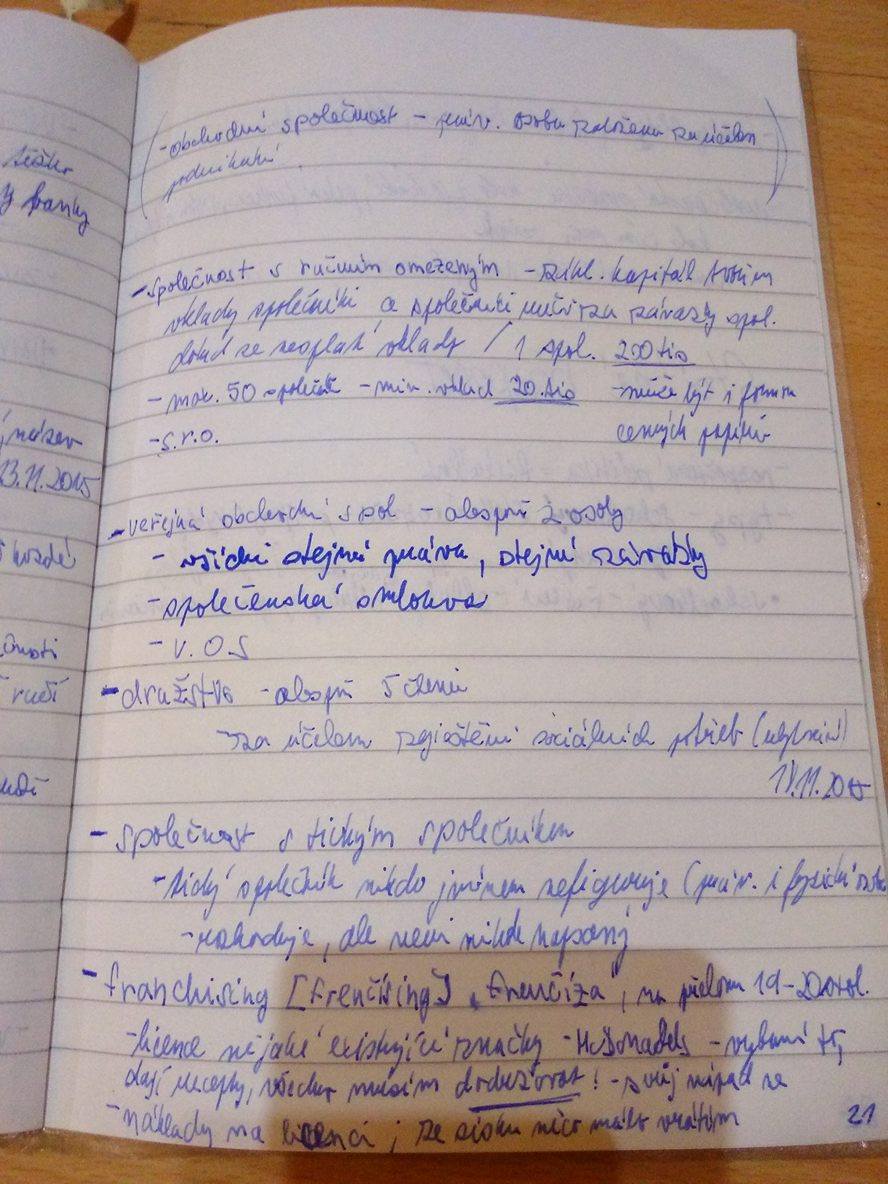 těžko
banky
název
13.11.2015
každé
ručí
(-obchodní společnost - práv. osoba založena za účelem
podnikání )
-společnost s ručním omezeným - zákl. kapitál tvořím
vklady společníků a společníci ručí za závazky spol.
dokad se nesplatí vklady / 1 spol. 200 tis
- max. 50 společ - min. vklad 20. tis - může být i formou
- s.r.o. cenných papírů
- veřejná obchodní spol - alespoň 2 osoby
- všichni stejná práva, stejné závazky
- společenská smlouva
- V. O S
- družstvo - alespoň 5 členů
- za účelem zajištění sociálních potřeb (
11.2015
- společnost s tichým společníkem
- tichý společník nikdo jménem nefiguruje (práv. i fyzická
- rozhoduje, ale není nikde napsaný
- franchising [frenčísing] „frenčíza", na přelomu 19-20. stol.
- licence nějaké existující značky - McDonadels - vybaví tě,
dají recepty, všechno musím dodržovat! - svůj nápad ne
- náklady na licenci, ze zisku něco málo vrátím
21